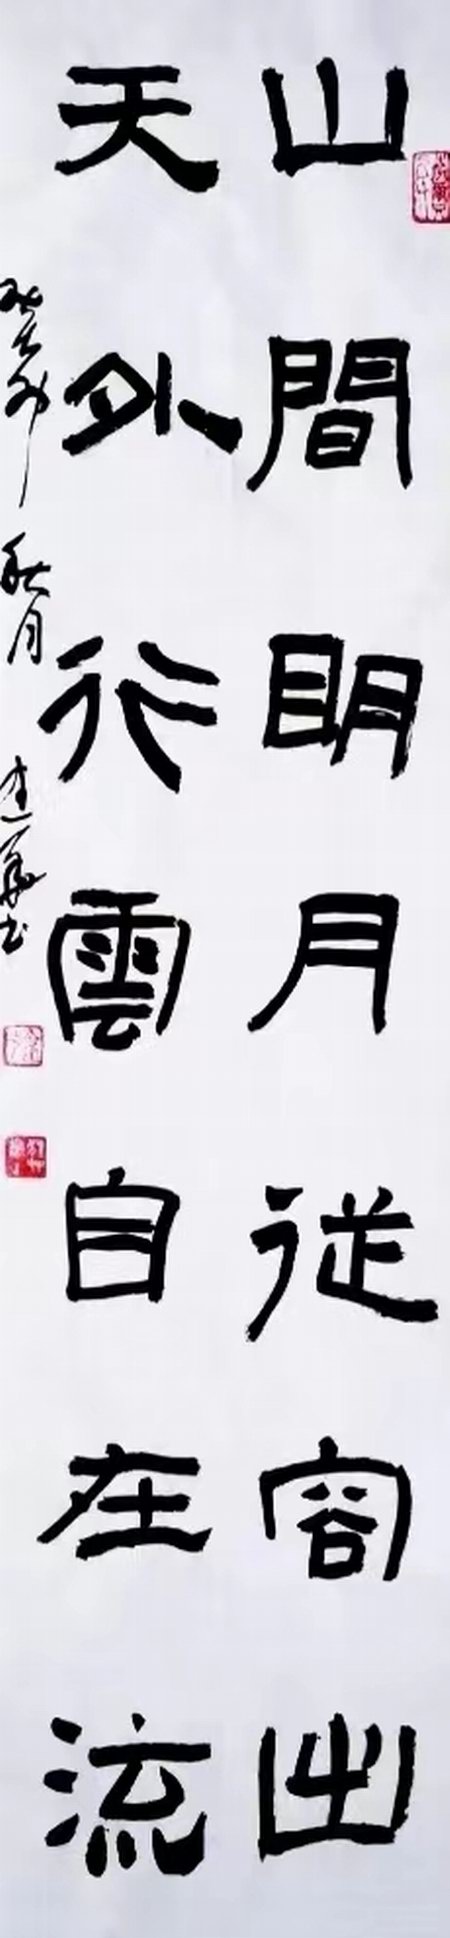 山間明月從容出
天外行雲自在流
癸卯秋月建華書